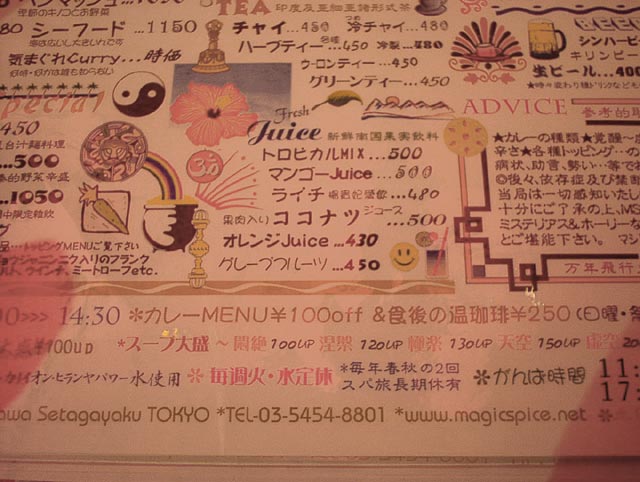 TEA 印度及亜細亜諸形式茶
シーフード ...1150
気まぐれCurry...時価
チャイ ...450 冷チャイ...480
ハーブティー...450 冷製...480
ウーロンティー ...450
グリーンティー...450
BEER
シンハービ
キリンビー
生ビール...400
Special
450
...500
...1050
Fresh Juice 新鮮南国果実飲料
トロピカルMIX ...500
マンゴーJuice ...500
ライチ 楊貴妃愛飲 ...480
果肉入り ココナツジュース ...500
オレンジJuice ...430
グレープフルーツ ...450
ADVICE 参考的
★カレーの種類★覚醒
辛さ★各種トッピング
病状、助言、勢い…等
◎後々、依存症及び禁
当局は一切感知いたし
十分にご了承の上、MS
ミステリアス&ホーリーな
とご堪能下さい。 マジ
万年飛行
トッピングMENUご覧下さい
ジョウジャンニンニク入りのフランク
ルト、ウインナ、ミートローフetc.
00>>> 14:30 *カレーMENU¥100off &食後の温珈琲¥250 (日曜・祭
大盛¥100up *スープ大盛 ~ 悶絶100UP 涅槃120UP 極楽130UP 天空150UP 虚空20
イオン・ヒランヤパワー水使用 *毎週火・水定休 *毎年春秋の2回スパ旅長期休有 *がんば時間 11:
17:
awa Setagayaku TOKYO *TEL-03-5454-8801 *www.magicspice.net *